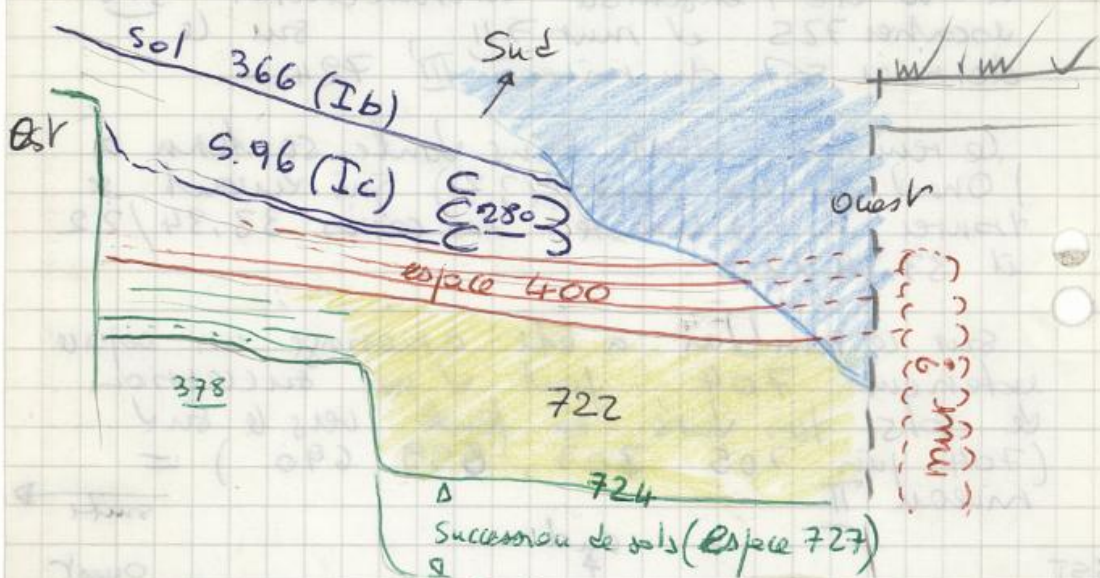 Sud
sol 366 (Ib)
Est
S.96 (Ic)
280
ouest
espace 400
mur ?
378
722
724
Succession de sols (Espace 727)